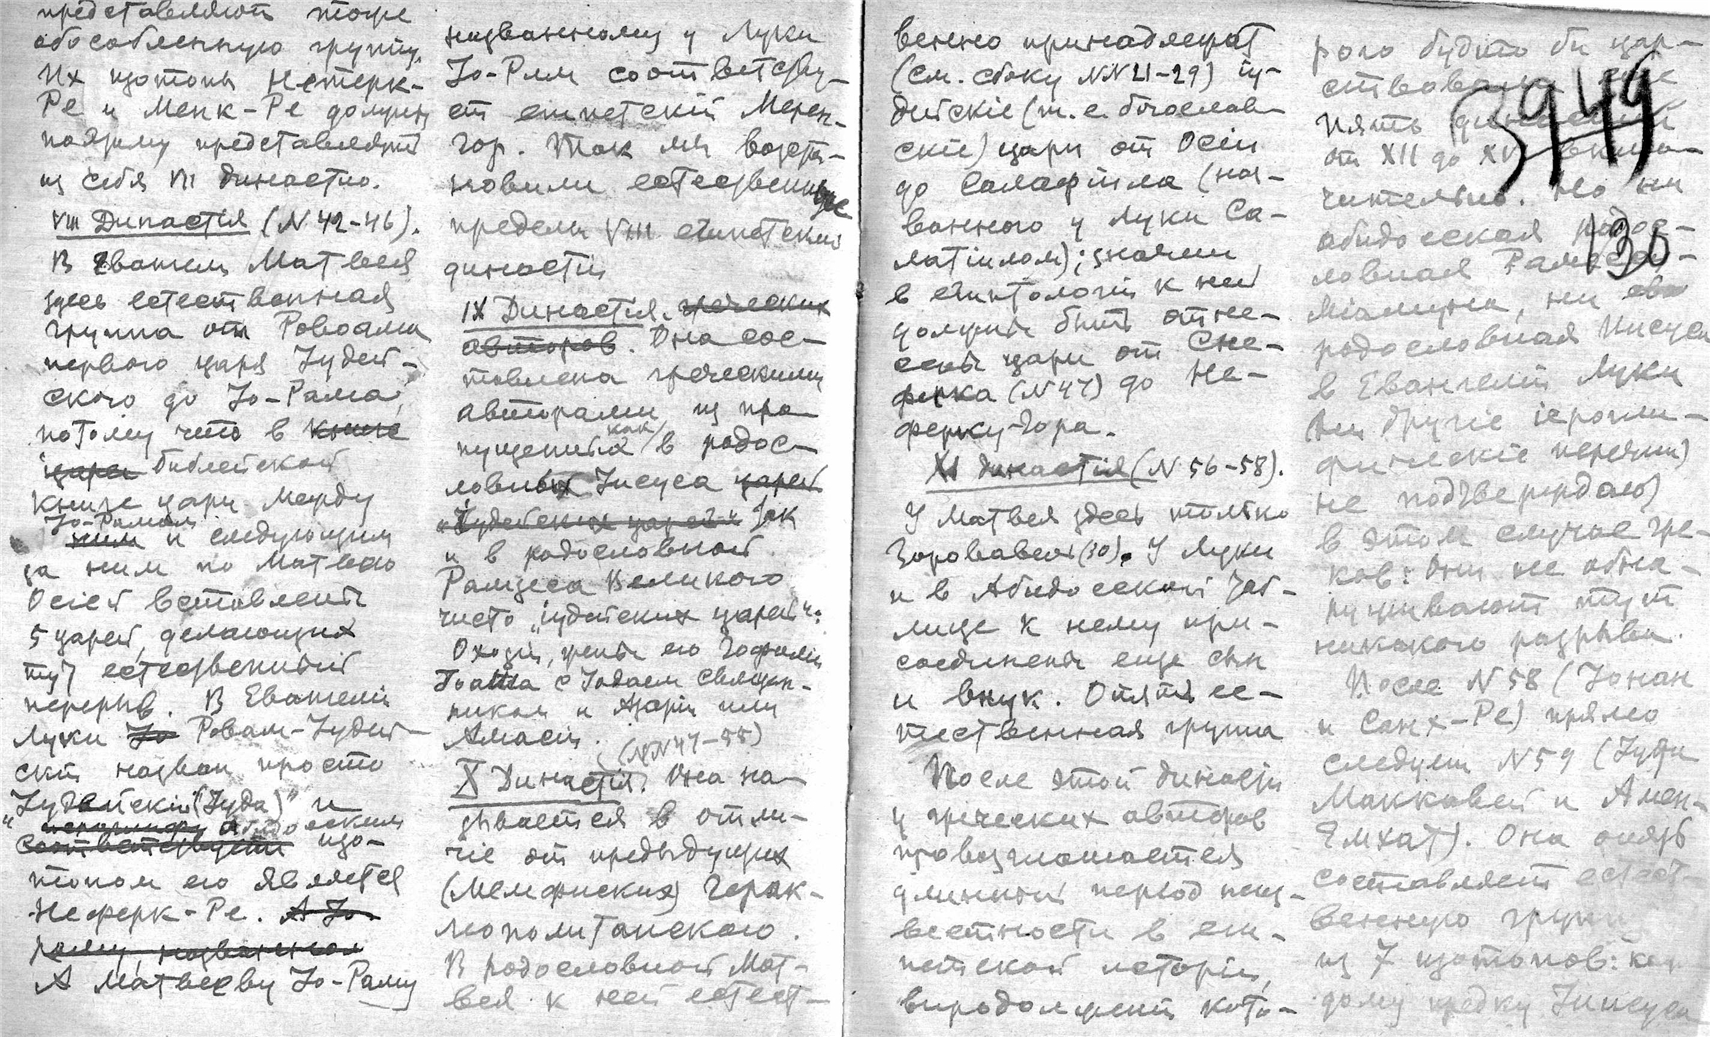 представляют тоже
обособленную группу.
Их изотопы Нетерк-
Ре и Менк-Ре должны
поэтому представлять
из себя VII династию.
VIII Династія (N 42-46).
В Евангелии Матвея
здесь естественная
группа от Ровоама
первого царя Іудей-
ского до Іо-Рама,
потому что в книге
царей библейской
книге цари между
Іо-Рамом
ним и следующим
за ним по Матвею
Осіей вставлены
5 царей, делающих
тут естественный
перерыв. В Евангеліи
Луки Іо Ровам-Іудей-
скій назван просто
"Іудейскій (Іуда)" и
абидосским
соответствует изо-
топом его является
Неферк-Ре. А Іо-
раму, названном
А Матвееву Іо-Раму
названному у Луки
Іо-Рим соответству-
ет египетскій Мерен-
гор. Так мы возста-
новили естественные
пределы VIII египетской
династіи
IX Династія. греческих
авторов. Она сос-
тавлена греческими
авторами из про-
пущенных как в родос-
ловных Іисуса царей
"Іудейских царей" так
и в родословной
Рамзеса Великого
чисто "іудейских царей":
Охозіи, жены его Гофоліи
Іоаса с Іодаем священ-
ником и Азаріи или
Амасіи.
(NN 47-55)
X Династія. Она на-
зывается в отли-
чіе от предыдущих
(Мемфисских) Герак-
леополитанского.
В родословной Мат-
вея к ней естест-
венно принадлежат
(см. сбоку NN 21-29) іу-
дейскіе (т.е. богослав-
скіе) цари от Осіи
до Салафіила (наз-
ванного у Луки Са-
латіилом); значит
в египтологіи к ней
должны быть отне-
сены цари от Сне-
ферка (N 47) до Не-
ферку-Гора.
XI династія (N 56-58).
У Матвея здесь только
Зоровавель (30). У Луки
и в Абидосской таб-
лице к нему при-
соединены еще сын
и внук. Опять ес-
тественная группа
После этой династіи
у греческих авторов
провозглашается
длинный період неиз-
вестности в еги-
петской исторіи,
впродолжении кото-
рого будто бы цар-
ствовали еще
пять династий
от XII до XVI включи-
чительно. Но ни
абидосская родос-
ловная Рамзеса-
Міамуна, ни
родословная Иисуса
в Евангеліи Луки
(ни другіе іерогли-
фическіе перечни)
не подтверждают
в этом случае гре-
ков: Они не обна-
руживают тут
никакого разрыва.
После N 58 (Іонан
и Санх-Ре) прямо
следует N 59 (Іуда
Маккавей и Амен-
Емхат). Она опять
составляет естест-
венную группу
из 7 изотопов: каж-
дому предку Іисуса
3949
130